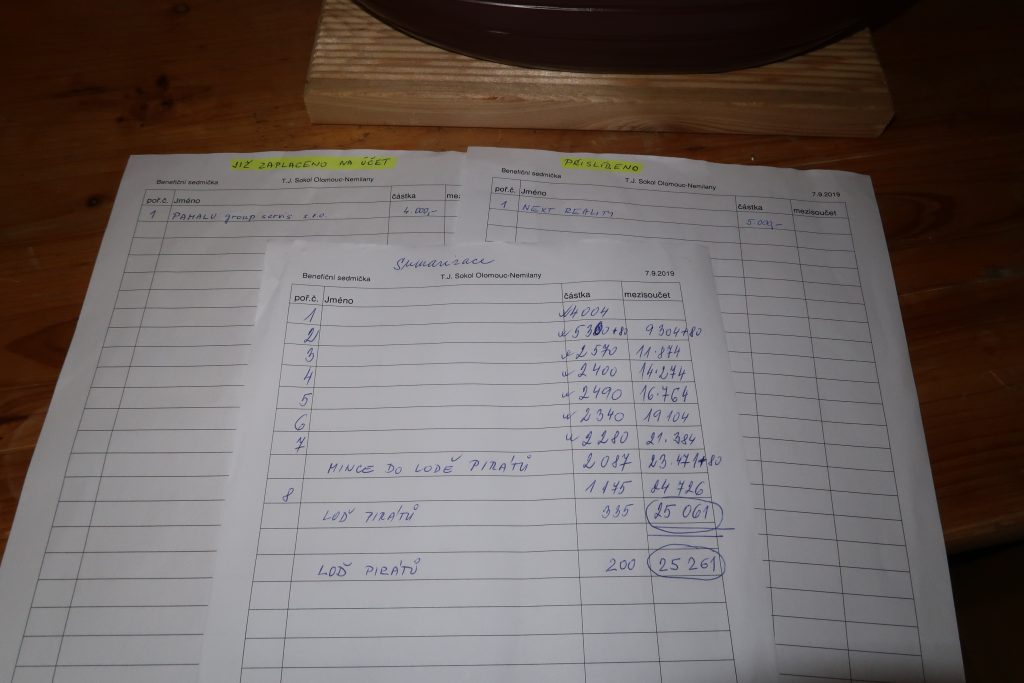 JIŽ ZAPLACENO NA ÚČET
Benefiční sedmička T.J. Sokol Olomouc-Nemilany
poř.č. Jméno částka mez
1 PAMALU group servis s.r.o. 4 000,-
PŘISLÍBENO
Benefiční sedmička T.J. Sokol Olomouc-Nemilany 7.9.2019
poř.č. Jméno částka mezisoučet
1 NEXT REALITY 5 000,-
Sumarizace
Benefiční sedmička T.J. Sokol Olomouc-Nemilany 7.9.2019
poř.č. Jméno částka mezisoučet
1 4004
2 5300+80 9304+80
3 2570 11.874
4 2400 14.274
5 2490 16.764
6 2340 19104
7 2280 21.384
MINCE DO LODĚ PIRÁTŮ 2087 23.471+80
8 1175 24726
LOĎ PIRÁTŮ 335 25 061
LOĎ PIRÁTŮ 200 25 261